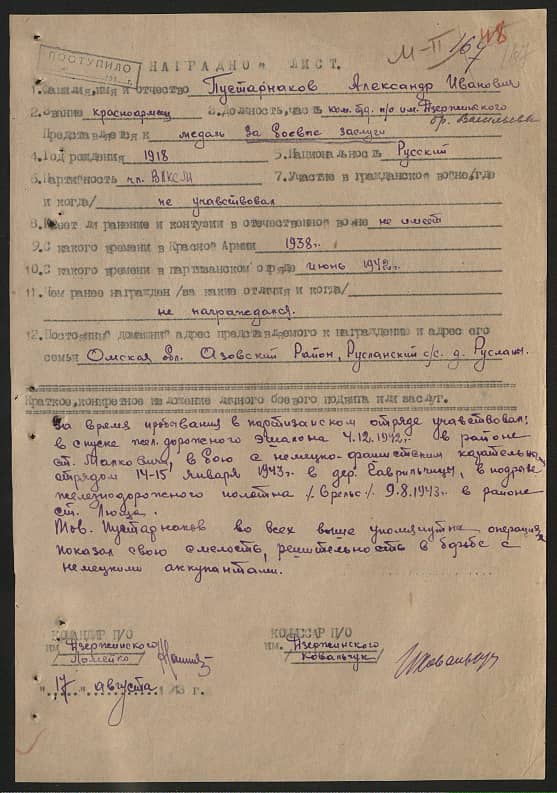 ПОСТУПИЛО
М-II 167
48
167
НАГРАДНОЙ ЛИСТ.
1.Фамилия,имя и отчество Пустарнаков Александр Иванович
2.Звание красноармеец 3.Должность,часть ком. отд. п/о им. Дзержинского
бр.
Представляется к медаль За боевые заслуги
4.Год рождения 1918 5.Национальность Русский
6.Партийность чл. ВЛКСМ 7.Участие в гражданской войне/где
и когда/ не учавствовал
8.Имеет ли ранение и контузии в отечественной войне не имеет
9.С какого времени в Красной Армии 1938г.
10.С какого времени в партизанском отряде июнь 1942г.
11.Чем ранее награжден /за какие отличия и когда/
не награждался.
12.Постоянный домашний адрес представляемого к награждению и адрес его
семьи Омская обл. Азовский Район, Русланский с/с. д. Русланы.
Краткое,конкретное изложение личного боевого подвига или заслуг.
За время пребывания в партизанском отряде учавствовал:
в спуске жел.дорожного эшалона 4.12.1942г. в районе
ст. Малковичи, в бою с немецко-фашистским карательным
отрядом 14-15 января 1943г. в дер. Гаврильчицы, в подрыве
железнодорожного полотна /Врельс/ 9.8.1943г. в районе
ст. Люща.
Тов. Пустарнаков во всех выше упомянутых операциях
показал свою смелость, решительность в борьбе с
немецкими аккупантами.
КОМАНДИР П/О КОМИССАР П/О
им. Дзержинского им. Дзержинского
/Ломейко/ /Ковальчук/
"17" августа 1943 г.